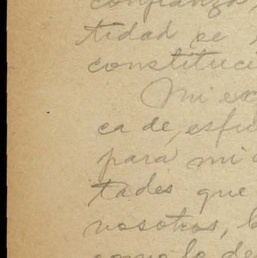 confianza,
tidad se
constituci
Mi ex
ca de, esfu
para mi
tades que
vosotros,
como lo de